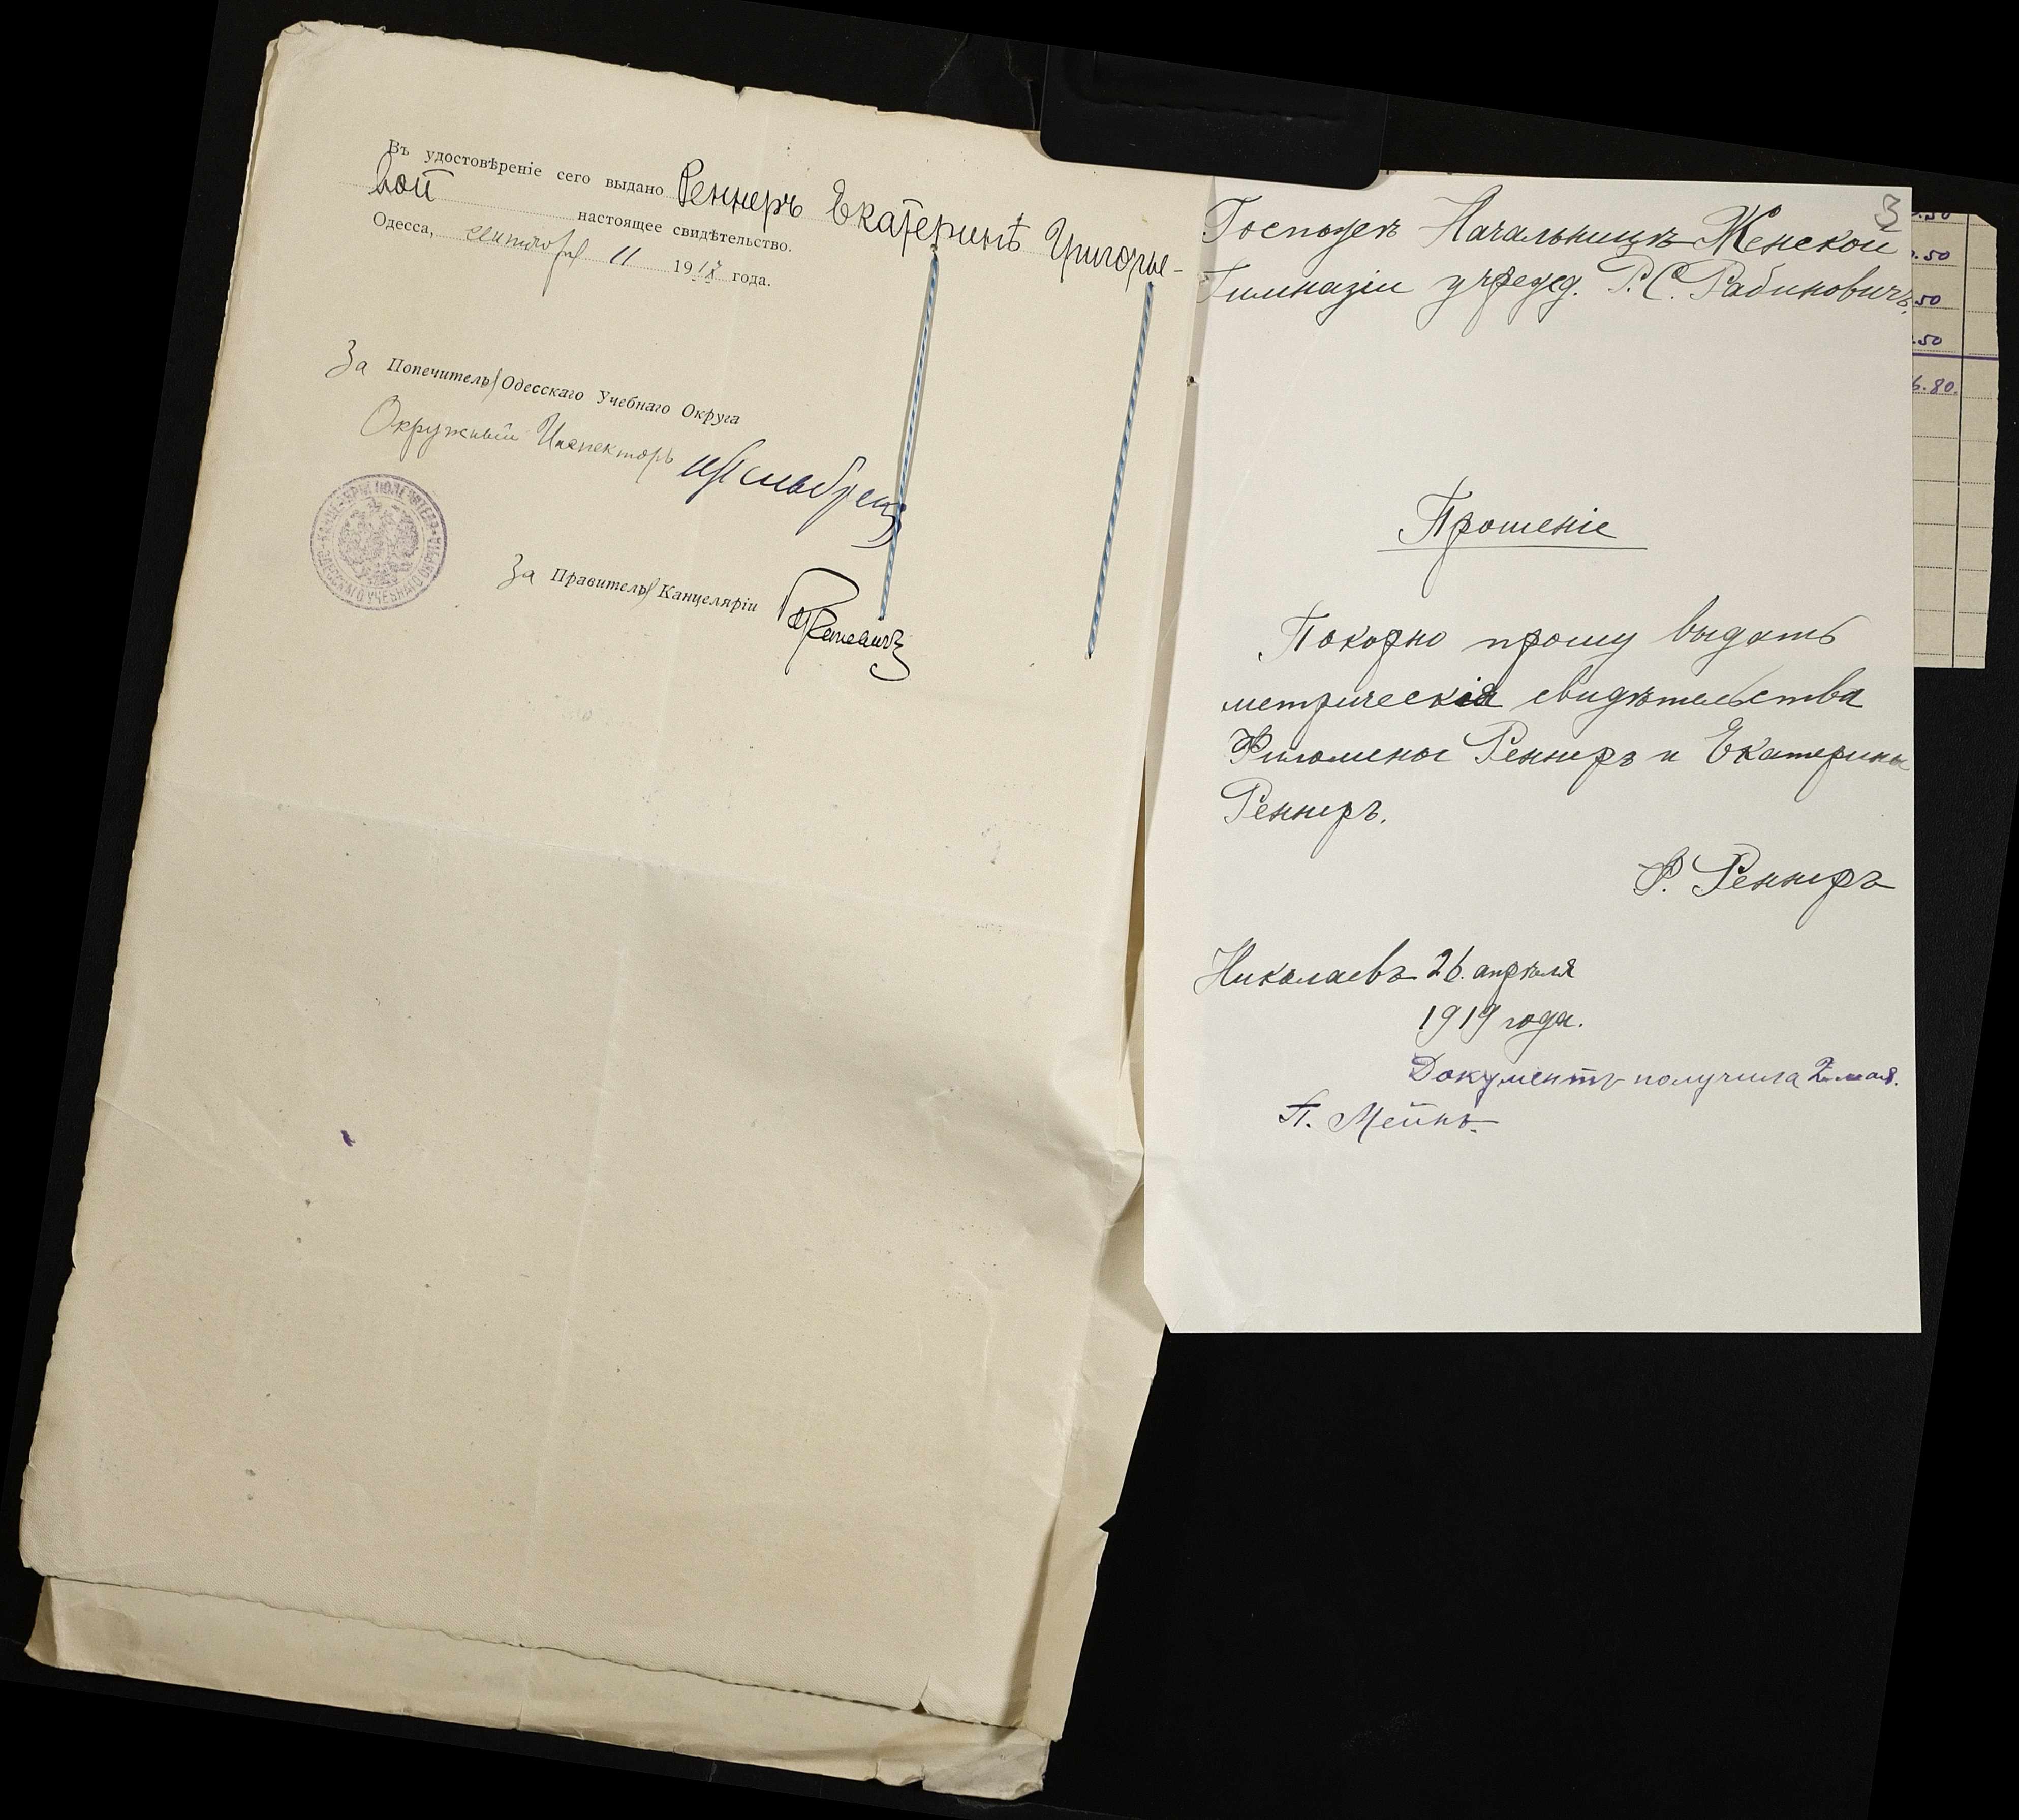 Въ удостовѣреніе сего выдано Реннеръ Екатеринѣ Григорье-
вой настоящее свидѣтельство.
Одесса, сентября 11 1917 года.
За Попечитель Одесскаго Учебнаго Округа
Окружный Инспекторъ
КАНЦЕЛЯРІЯ ПОПЕЧИТЕЛЯ ОДЕССКАГО УЧЕБНАГО ОКРУГА
За Правитель Канцеляріи
3
Госпожѣ Начальницѣ Женской
Гимназіи учрежд. Р. С. Рабиновичъ.
Прошеніе
Покорно прошу выдать
метрическія свидѣтельства
Филомены Реннеръ и Екатерины
Реннеръ.
Ф. Реннеръ
Николаевъ 26. апрѣля
1919 года.
Документъ получила 2 мая.
П. Мейнъ.
.50
.50
.50
.50
6.80.